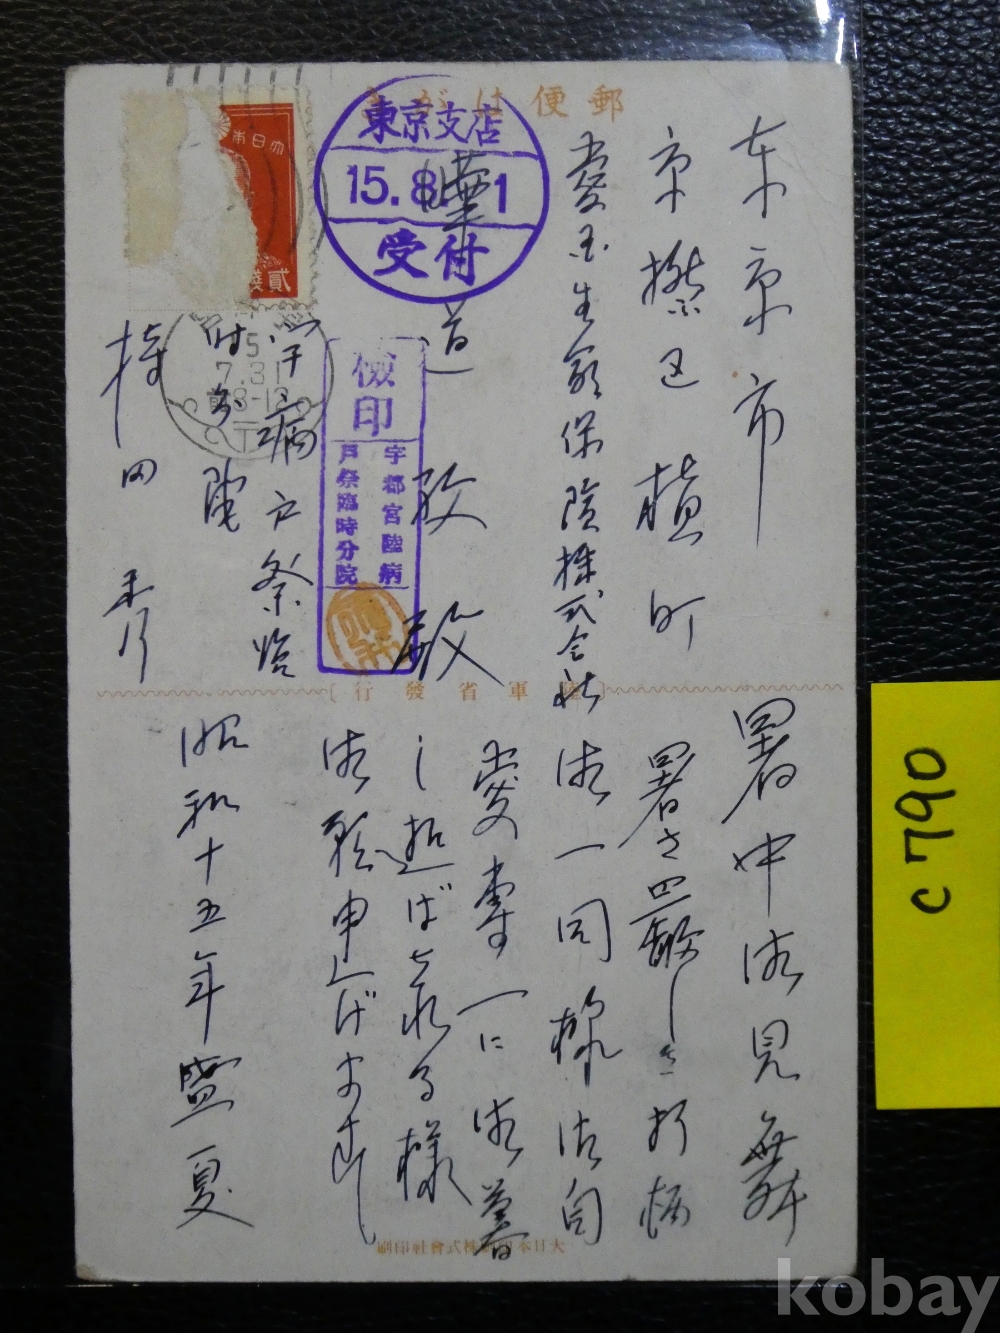 郵便はがき
東京市
京橋区槙町
愛国生命保険株式会社
道
殿
東京支店
15.8. 1
受付
大日本
貳錢
7.31
8-12
検印
宇都宮陸病
戸祭臨時分院
宇病戸祭臨
時分院
持田
陸軍省發行
暑中御見舞
暑さ酷しき折柄
御一同様御自
愛専一に御暮
し遊ばされる様
御願申上げます
昭和十五年盛夏
大日本印刷株式會社印刷
C790
kobay